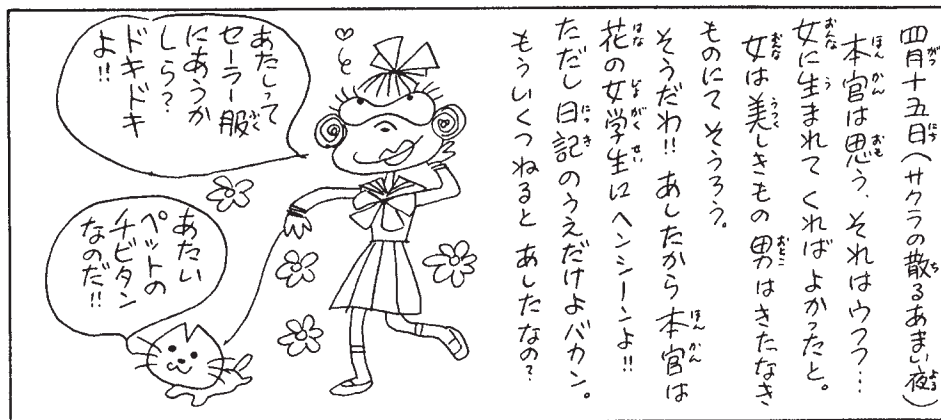 四月十五日(サクラの散るあまい夜)
本官は思う、それはウフフ…
女に生まれてくればよかったと。
女は美しきもの男はきたなき
ものにてそうろう。
そうだわ!!あしたから本官は
花の女学生にヘンシーンよ!!
ただし日記のうえだけよバカン。
もういくつねるとあしたなの?
あたしって
セーラー服
にあうか
しら?
ドキドキ
よ!!
あたい
ペットの
チビタン
なのだ!!